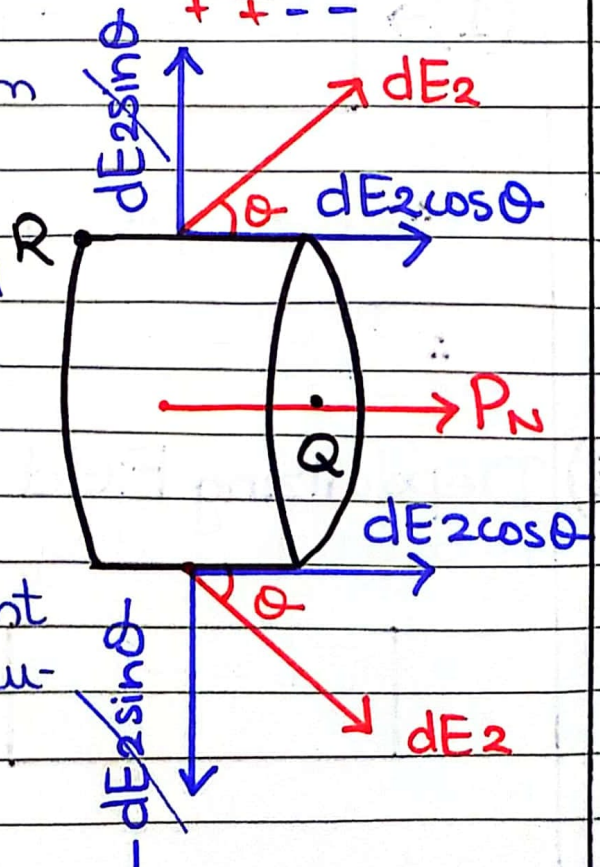 + + - -
dE2sinθ
dE2
θ
dE2cosθ
R
PN
Q
dE2cosθ
θ
-dE2sinθ
dE2